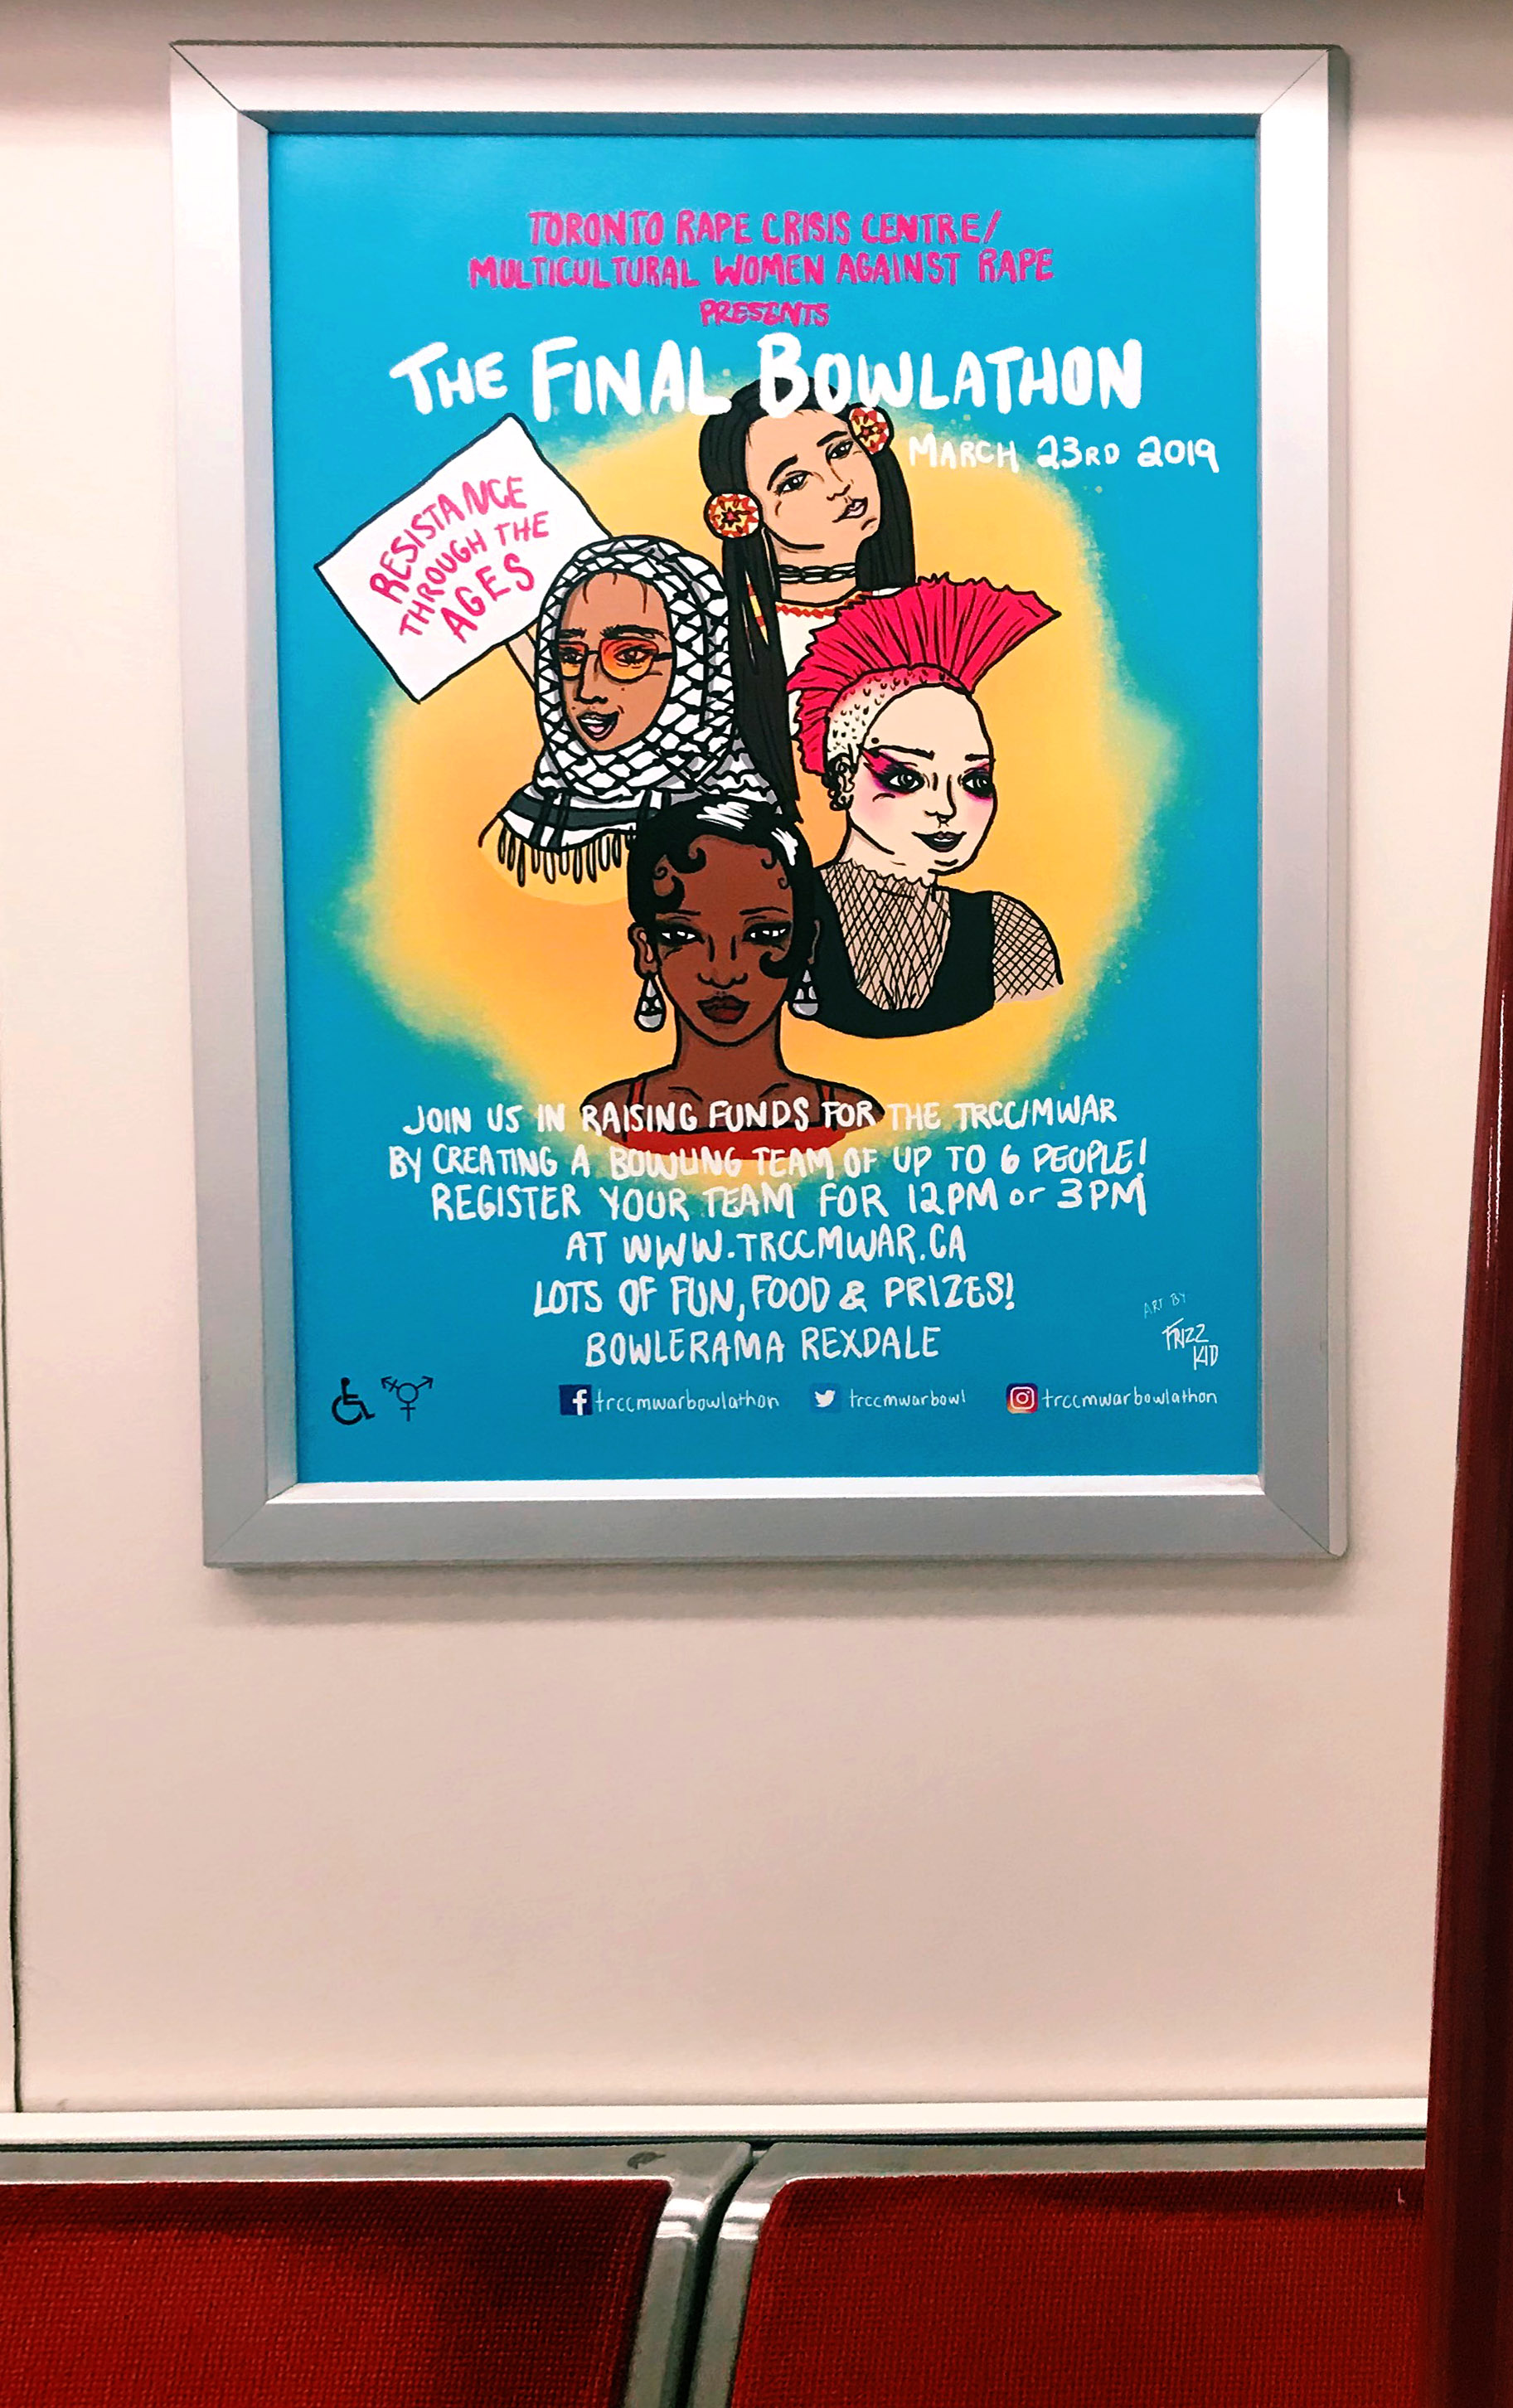 TORONTO RAPE CRISIS CENTRE/
MULTICULTURAL WOMEN AGAINST RAPE
PRESENTS
THE FINAL BOWLATHON
MARCH 23RD 2019
RESISTANCE
THROUGH THE
AGES
JOIN US IN RAISING FUNDS FOR THE TRCC/MWAR
BY CREATING A BOWLING TEAM OF UP TO 6 PEOPLE!
REGISTER YOUR TEAM FOR 12PM or 3PM
AT WWW.TRCCMWAR.CA
LOTS OF FUN, FOOD & PRIZES!
BOWLERAMA REXDALE
ART BY
FRIZZ
KID
trccmwarbowlathon trccmwarbowl trccmwarbowlathon